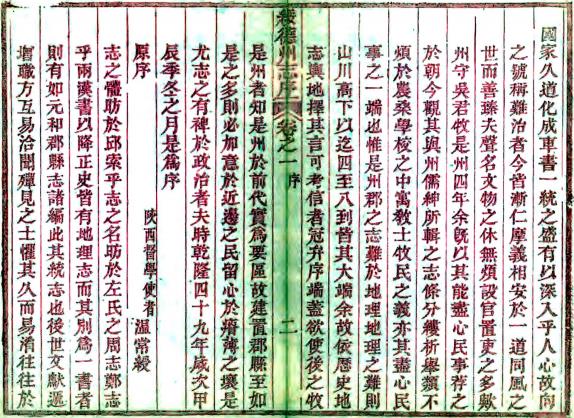 國家久道化成車書一統之盛有以深入乎人心故向
之號稱難治者今皆漸仁摩義相安於一道同風之
世而善臻夫聲名文物之休無煩設官置吏之多歟
州守吳君牧是州四年余旣以其能盡心民事荐之
於朝今觀其與州儒紳所輯之志條分縷析舉類不
煩於農桑學校之中寓敎士牧民之義亦其盡心民
事之一端也惟是州郡之志難於地理地理之難則
山川高下以迄四至八到皆其大端余故依歷史地
志輿地擇其言可考信者冠弁序端蓋欲使後之牧
綏德州志序 卷之一 序 二
是州者知是州於前代實爲要區故建置郡縣至如
是之多則必加意於近邊之民留心於瘠薄之壤是
尤志之有裨於政治者夫時乾隆四十九年歲次甲
辰季冬之月是爲序
陝西督學使者 溫常綬
原序
志之體昉於邱索乎志之名昉於左氏之周志鄭志
乎兩漢書以降正史皆有地理志而其別爲一書者
則有如元和郡縣志諸編此其統志也後世文獻遞
增職方互易洽聞殫見之士懼其久而易淆往往於